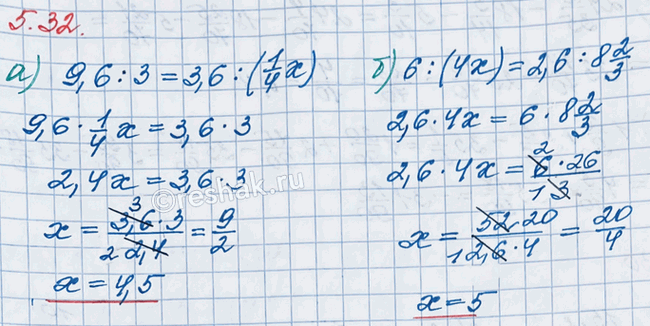 5.32.
а) 9,6 : 3 = 3,6 : (1/4 x)
9,6 · 1/4 x = 3,6 · 3
2,4x = 3,6 · 3
x = 3,6 · 3 / 2,4 = 9/2
3
2
x = 4,5
б) 6 : (4x) = 2,6 : 8 2/3
2,6 · 4x = 6 · 8 2/3
2,6 · 4x = 6 · 26 / 3
2
1
x = 52 · 20 / 2,6 · 4 = 20/4
1
x = 5
©reshak.ru